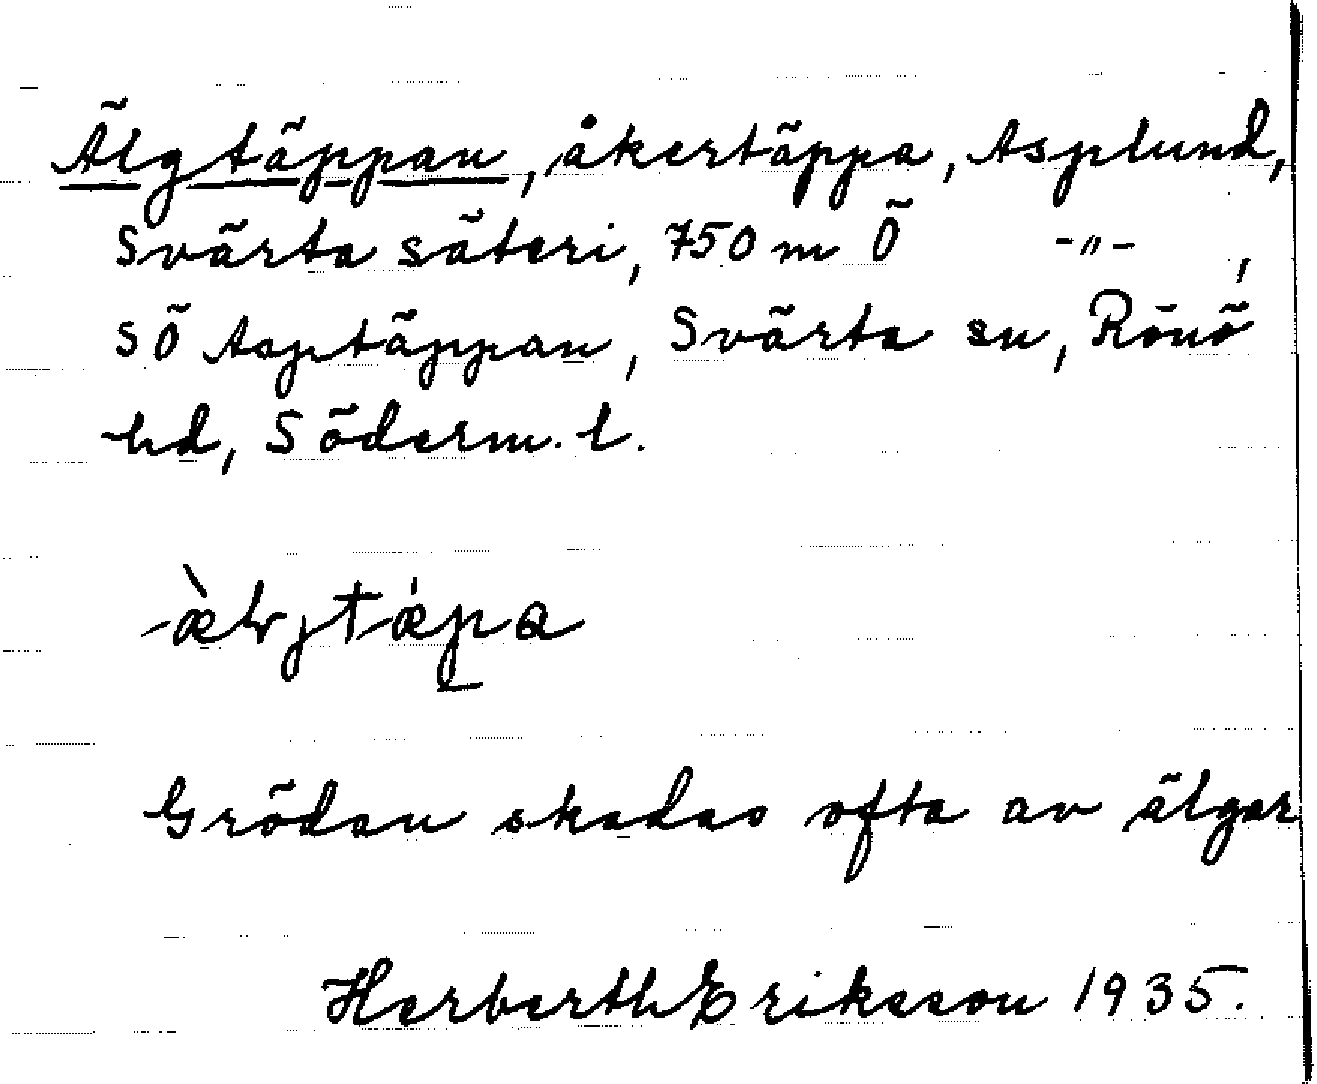 Älgtäppan, åkertäppa, Asplund,
Svärta säteri, 750 m Ö -"- ,
SÖ Asptäppan, Svärta sn, Rönö
hd, Söderm. l.
Grödan skadas ofta av älgar
Herberth Eriksson 1935.